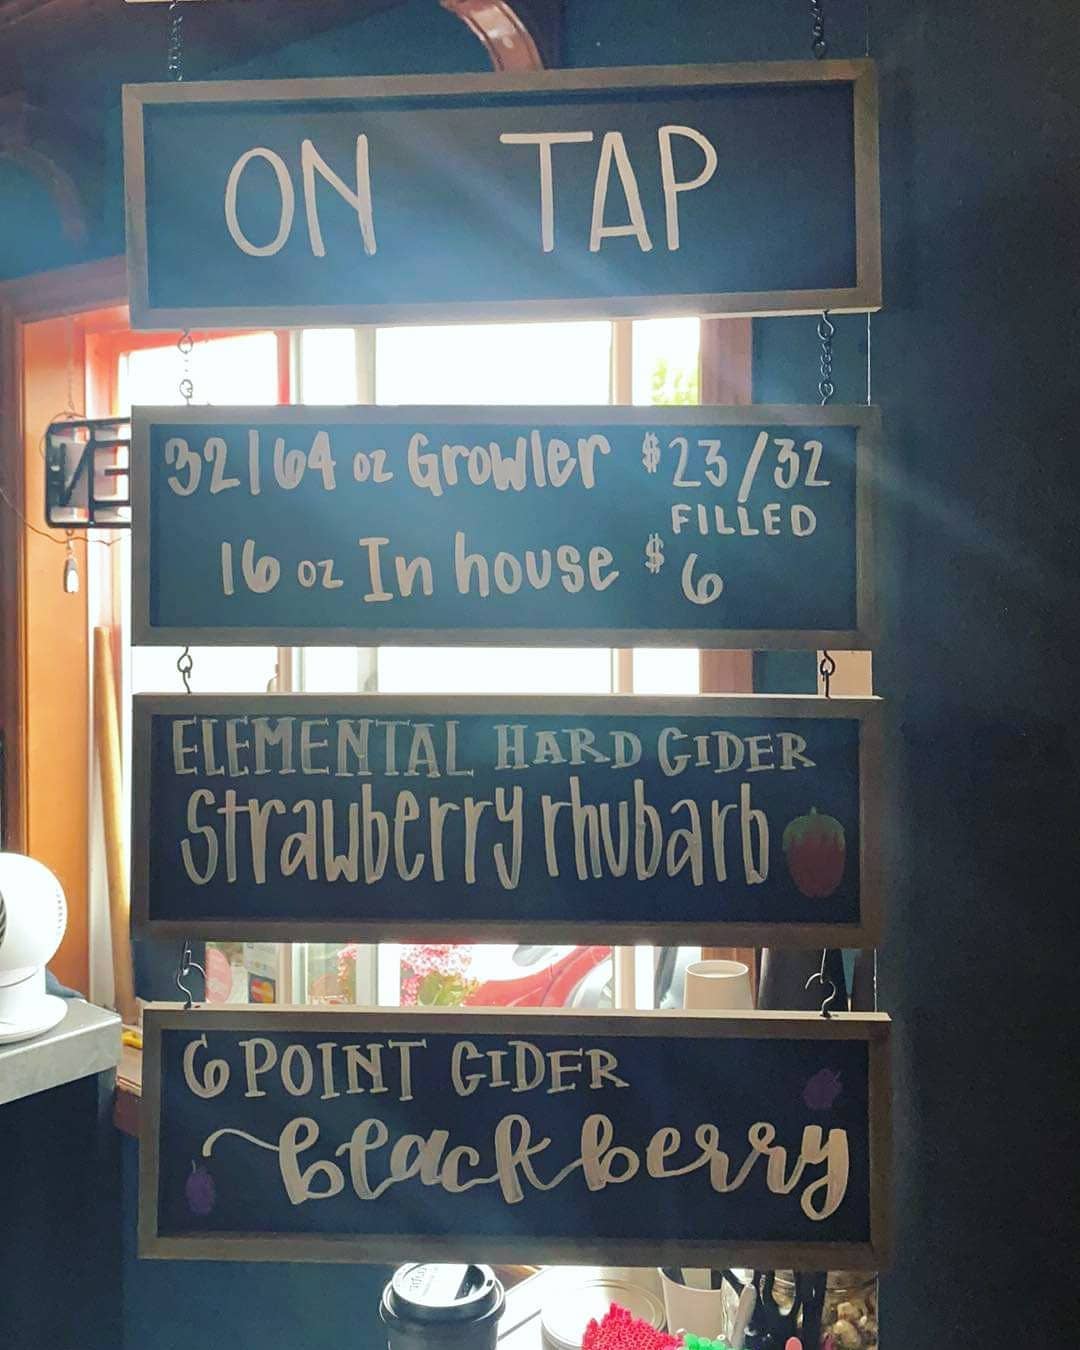 ON TAP
32/64 oz Growler $23/32
FILLED
16 oz In house $6
ELEMENTAL HARD CIDER
Strawberry rhubarb
6 POINT CIDER
blackberry